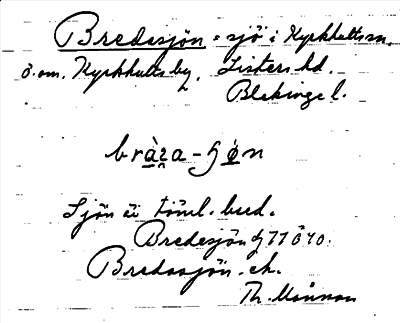 Bredasjön = sjö i Kyrkhults sn.
ö. om. Kyrkhults by. Listers hd.
Blekinge l.
bràra-ɧøn
Sjön är täml. bred.
Bredesjön GS 77 Ö 40.
Bredasjön. ek.
Th. Månnson